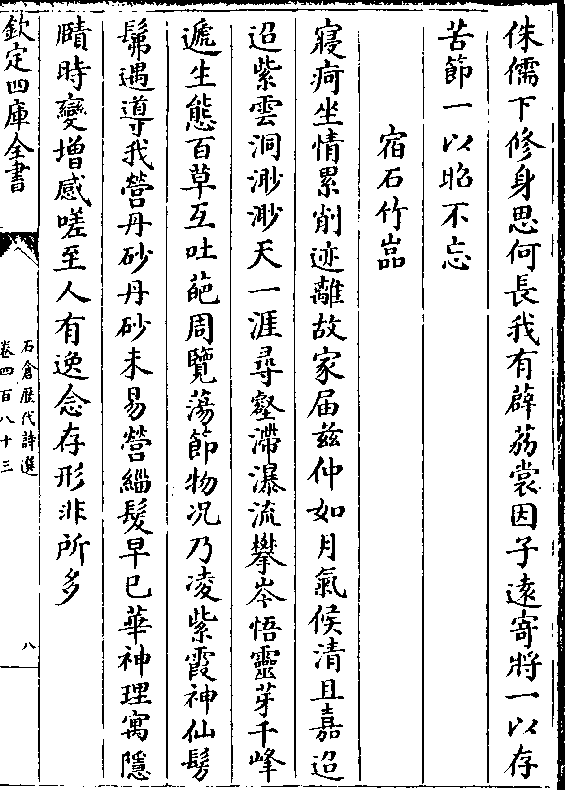 侏儒下修身思何長我有薜荔裳因子遠寄將一以存
苦節一以昭不忘
宿石竹嵓
寢疴坐情累削迹離故家届兹仲如月氣候清且嘉迢
迢紫雲洞渺渺天一涯尋壑滯瀑流攀岑悟靈芽千峰
遞生態百草互吐葩周覽蕩節物况乃凌紫霞神仙髣
髴遇導我營丹砂丹砂未易營緇髮早已華神理寓隱
賾時變增感嗟至人有逸念存形非所多
欽定四庫全書
石倉歷代詩選
卷四百八十三
八